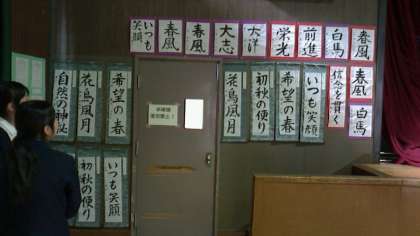 いつも笑顔
春風
春風
大志
大洋
栄光
前進
白馬
春風
信念を貫く
春風
白馬
自然の神秘
花鳥風月
希望の春
花鳥風月
初秋の便り
希望の春
いつも笑顔
初秋の便り
いつも笑顔